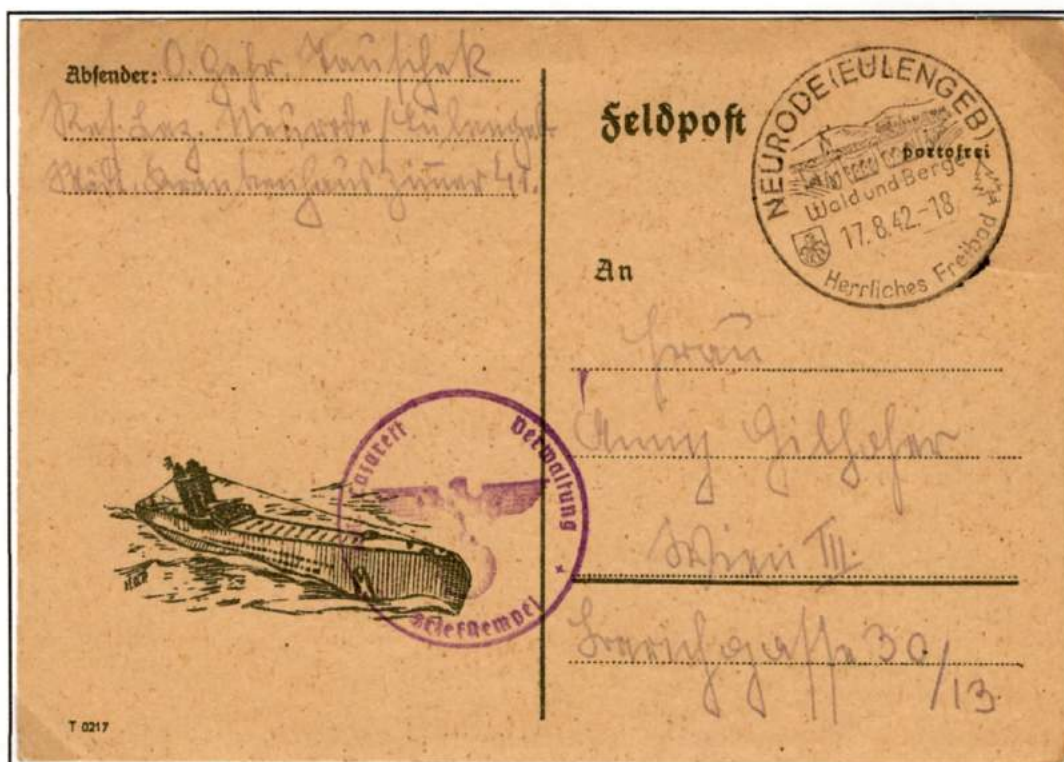 Absender: O. Gefr. Tauschek
Res. Laz. Neurode/Eulengeb.
Städt. Krankenhaus Zimmer 41.
Feldpost
portofrei
NEURODE (EULENGEB)
Wald und Berge
17.8.42.-18
Herrliches Freibad
An
Frau
Anny Gilhofer
Wien III.
30/13
Lazarett Verwaltung
Briefstempel
T 0217